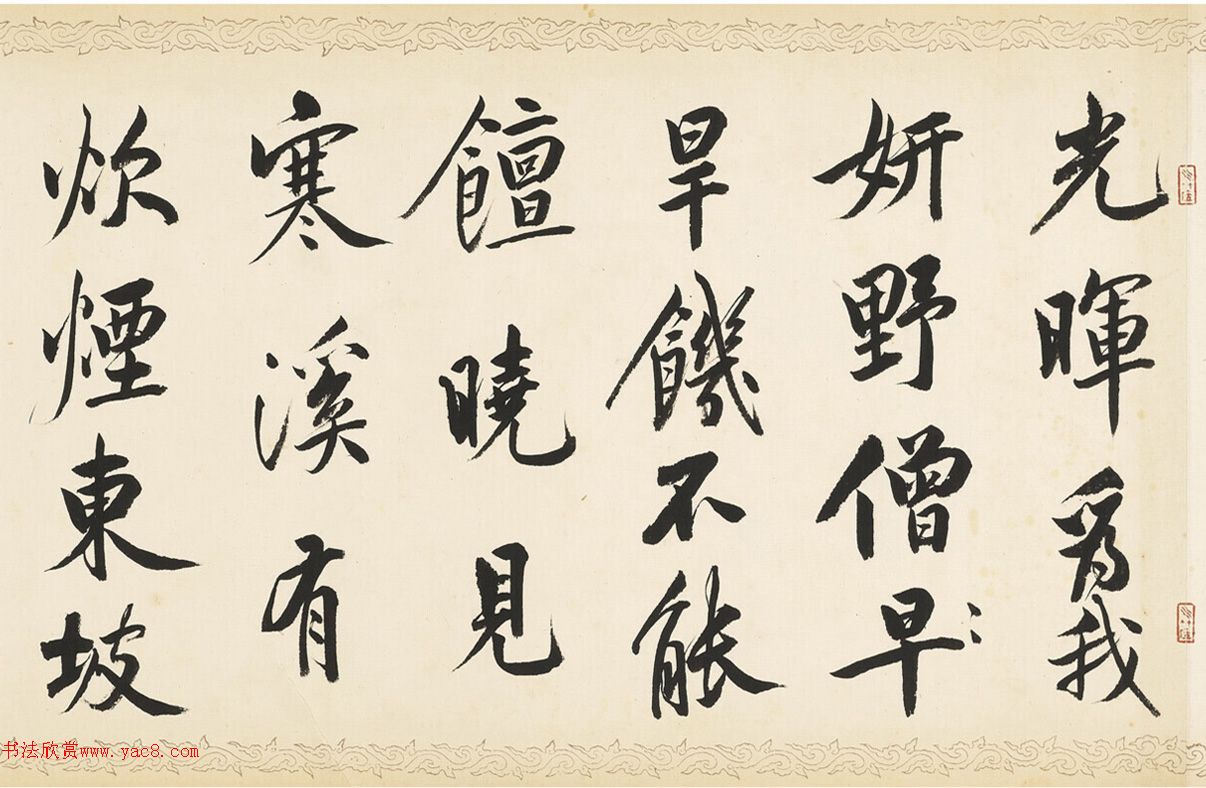 光暉為我
妍野僧早
旱饑不能
饘曉見
寒溪有
炊煙東坡
书法欣赏www.yac8.com